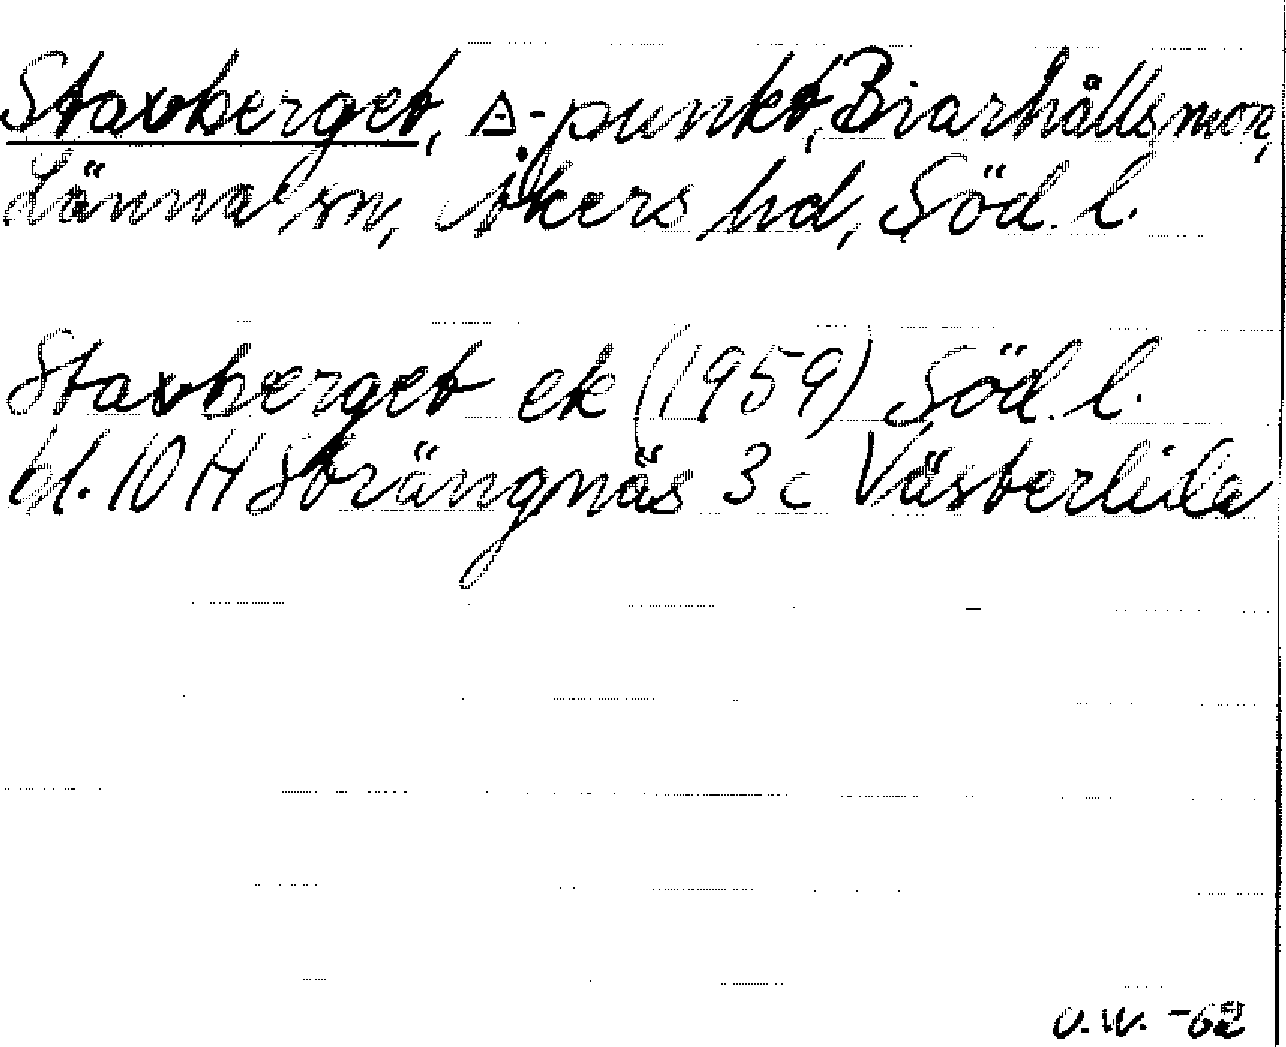 Staxberget, △-punkt, Biarhällsmon,
Länna sn, Åkers hd, Söd. l.
Staxberget ek (1959) Söd. l.
bl. 10 H Strängnäs 3 c Västerlida
O.W. -62